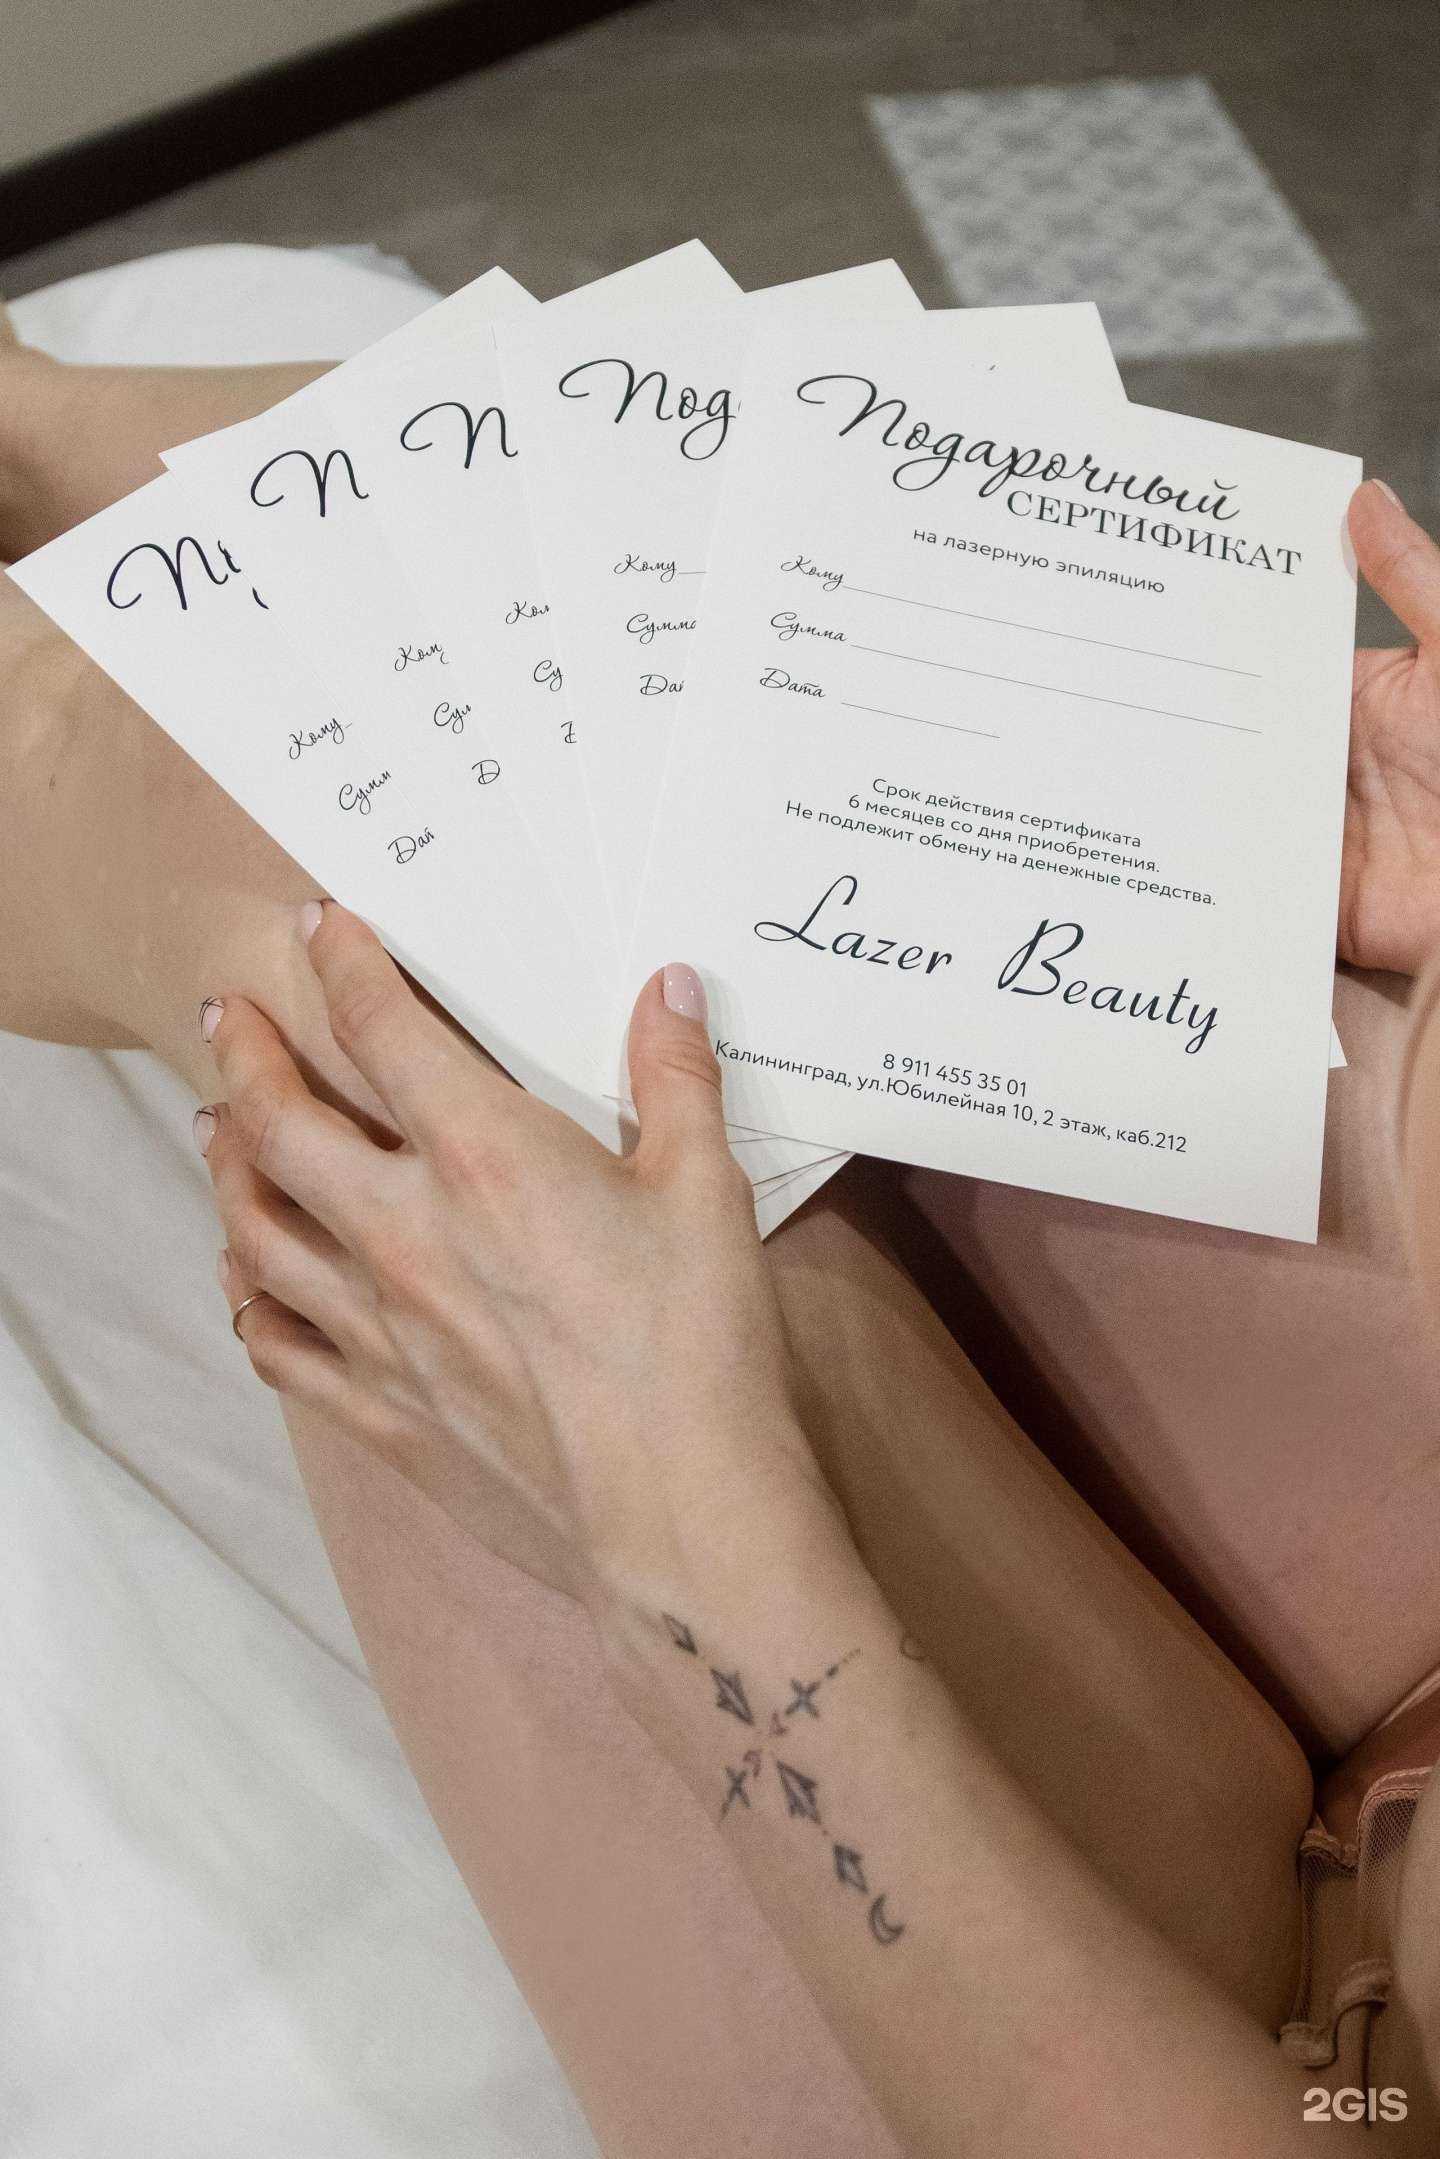 Подарочный
СЕРТИФИКАТ
на лазерную эпиляцию
Кому
Сумма
Дата
Срок действия сертификата
6 месяцев со дня приобретения.
Не подлежит обмену на денежные средства.
Lazer Beauty
8 911 455 35 01
Калининград, ул.Юбилейная 10, 2 этаж, каб.212
Под
Кому
Сумма
Да
П
Ком
Су
П
Ком
Сум
Д
П
Кому
Сумм
Дат
2GIS